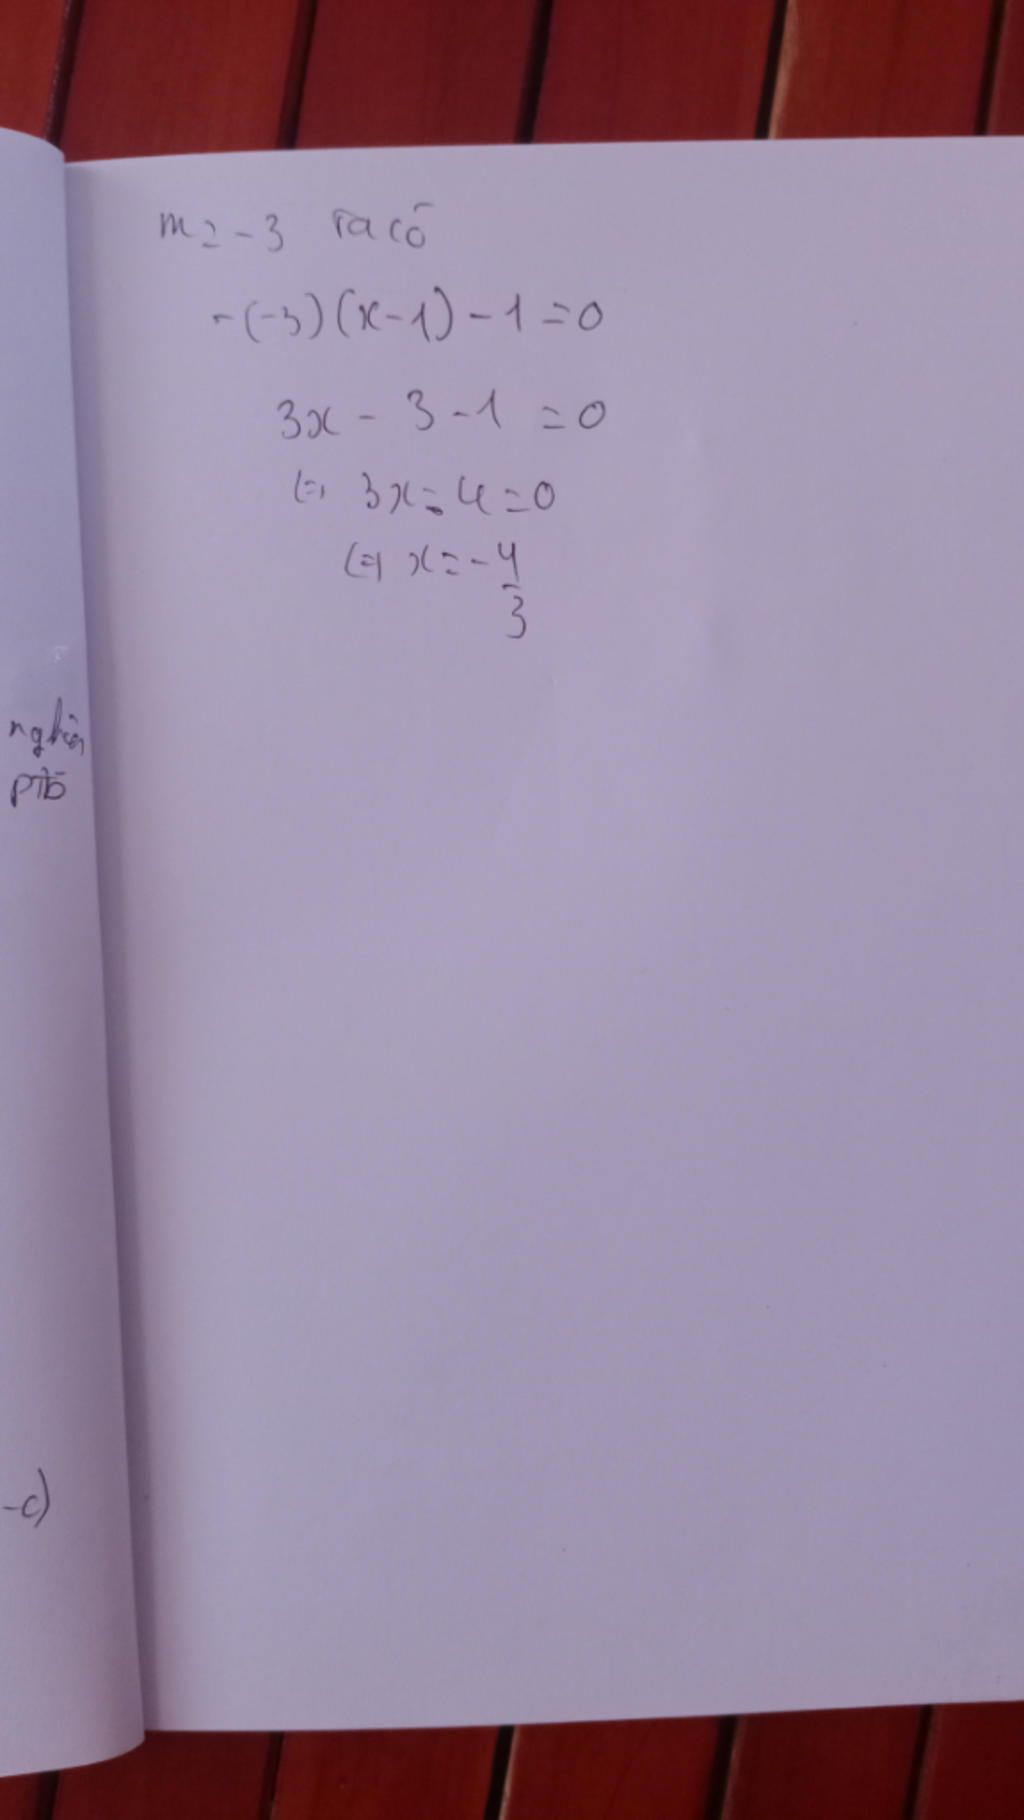 m = -3 ta có
-(-3)(x-1) - 1 = 0
3x - 3 - 1 = 0
(=) 3x - 4 = 0
(=) x = -4/3
nghiệm
-c)